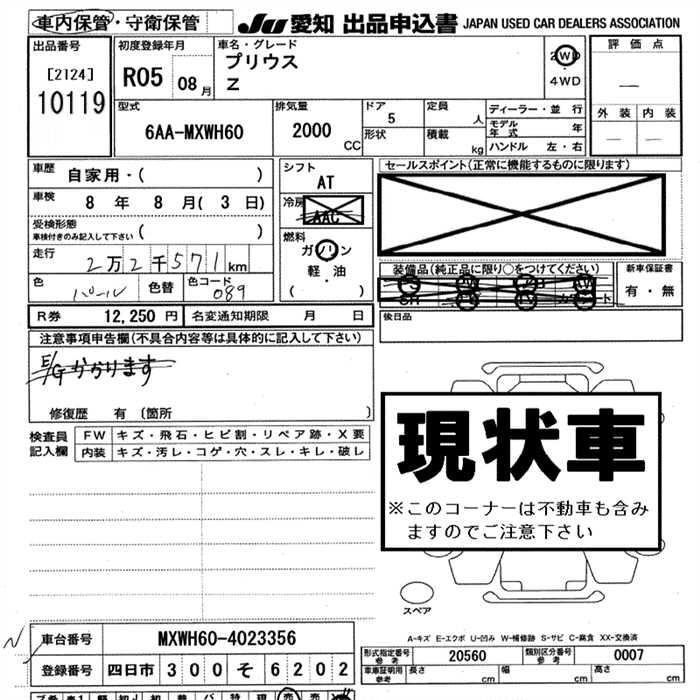 車内保管・守衛保管
JU 愛知 出品申込書 JAPAN USED CAR DEALERS ASSOCIATION
出品番号
[2124]
10119
初度登録年月
R05 08月
車名・グレード
プリウス
Z
2WD
・
4WD
評価点
—
外装 内装
— —
型式
6AA-MXWH60
排気量
2000
CC
ドア
5
形状
定員
人
積載
kg
ディーラー・並行
モデル年式 年
ハンドル 左・右
車歴 自家用・( )
車検 8年8月(3日)
受検形態
車検付きのみ記入して下さい ( )
走行 2万2千571km
色 パール 色替 色コード 089
シフト
AT
冷房
AAC
燃料
ガソリン
軽・油
( )
セールスポイント(正常に機能するものに限ります)
装備品(純正品に限り○をつけてください)
新車保証書
有・無
後日品
R券 12,250円 名変通知期限 月 日
注意事項申告欄(不具合内容等は具体的に記入して下さい)
E/Gかかります
修復歴 有 〔箇所 〕
検査員記入欄
FW キズ・飛石・ヒビ割・リペア跡・X要
内装 キズ・汚レ・コゲ・穴・スレ・キレ・破レ
現状車
※このコーナーは不動車も含み
ますのでご注意下さい
スペア
A-キズ E-エクボ U-凹み W-補修跡 S-サビ C-腐食 XX-交換済
N
車台番号 MXWH60-4023356
登録番号 四日市 300 そ 6202
形式指定番号
参考
20560
類別区分番号
参考
0007
車庫証明用
参考
長さ cm 幅 cm 高さ cm